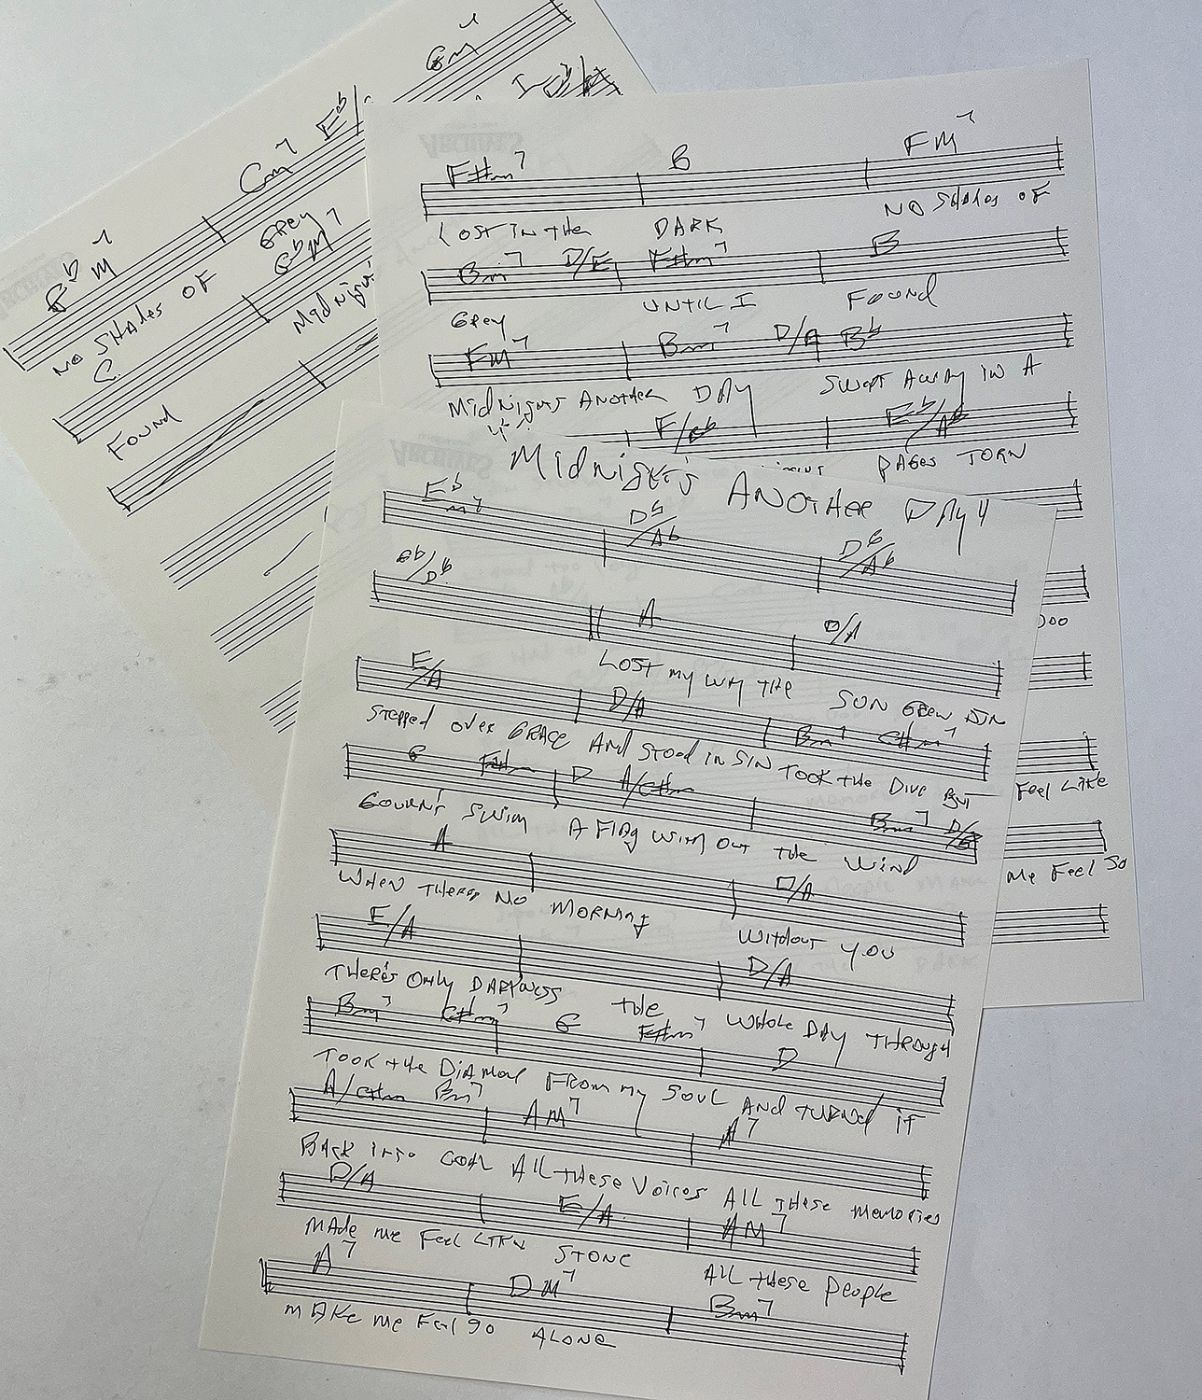 Gm7
Cm7 Eb/
GbM7
NO SHADES OF GREY
C GbM7
FOUND MIDNIGHT
F#m7 B FM7
LOST IN THE DARK NO SHADES OF
Bm7 D/E F#m7 B
GREY UNTIL I FOUND
FM7 Bm7 D/A Bb
MIDNIGHTS ANOTHER DAY SWEPT AWAY IN A
F/ Eb/Ab
PAGES TORN
DOO
FEEL LIKE
ME FEEL SO
MIDNIGHT'S ANOTHER DAY 4
Ebm7 Db/Ab Db/Ab
Gb/Db A D/A
LOST MY WAY THE SUN GREW DIM
E/A D/A Bm7 C#m7
STEPPED OVER GRACE AND STOOD IN SIN TOOK THE DIVE BUT
G F#m D A/C#m Bm7
COULDN'T SWIM A FLAG WITH OUT THE WIND
A D/A
WHEN THERES NO MORNING WITHOUT YOU
E/A D/A
THERE'S ONLY DARKNESS THE WHOLE DAY THROUGH
Bm7 C#m7 G F#m7 D
TOOK THE DIAMOND FROM MY SOUL AND TURNED IT
A/C#m Bm7 AM7 A7
BACK INTO COAL ALL THESE VOICES ALL THESE MEMORIES
D/A E/A AM7
MADE ME FEEL LIKE STONE ALL THESE PEOPLE
A7 DM7 Bm7
MAKE ME FEEL SO ALONE